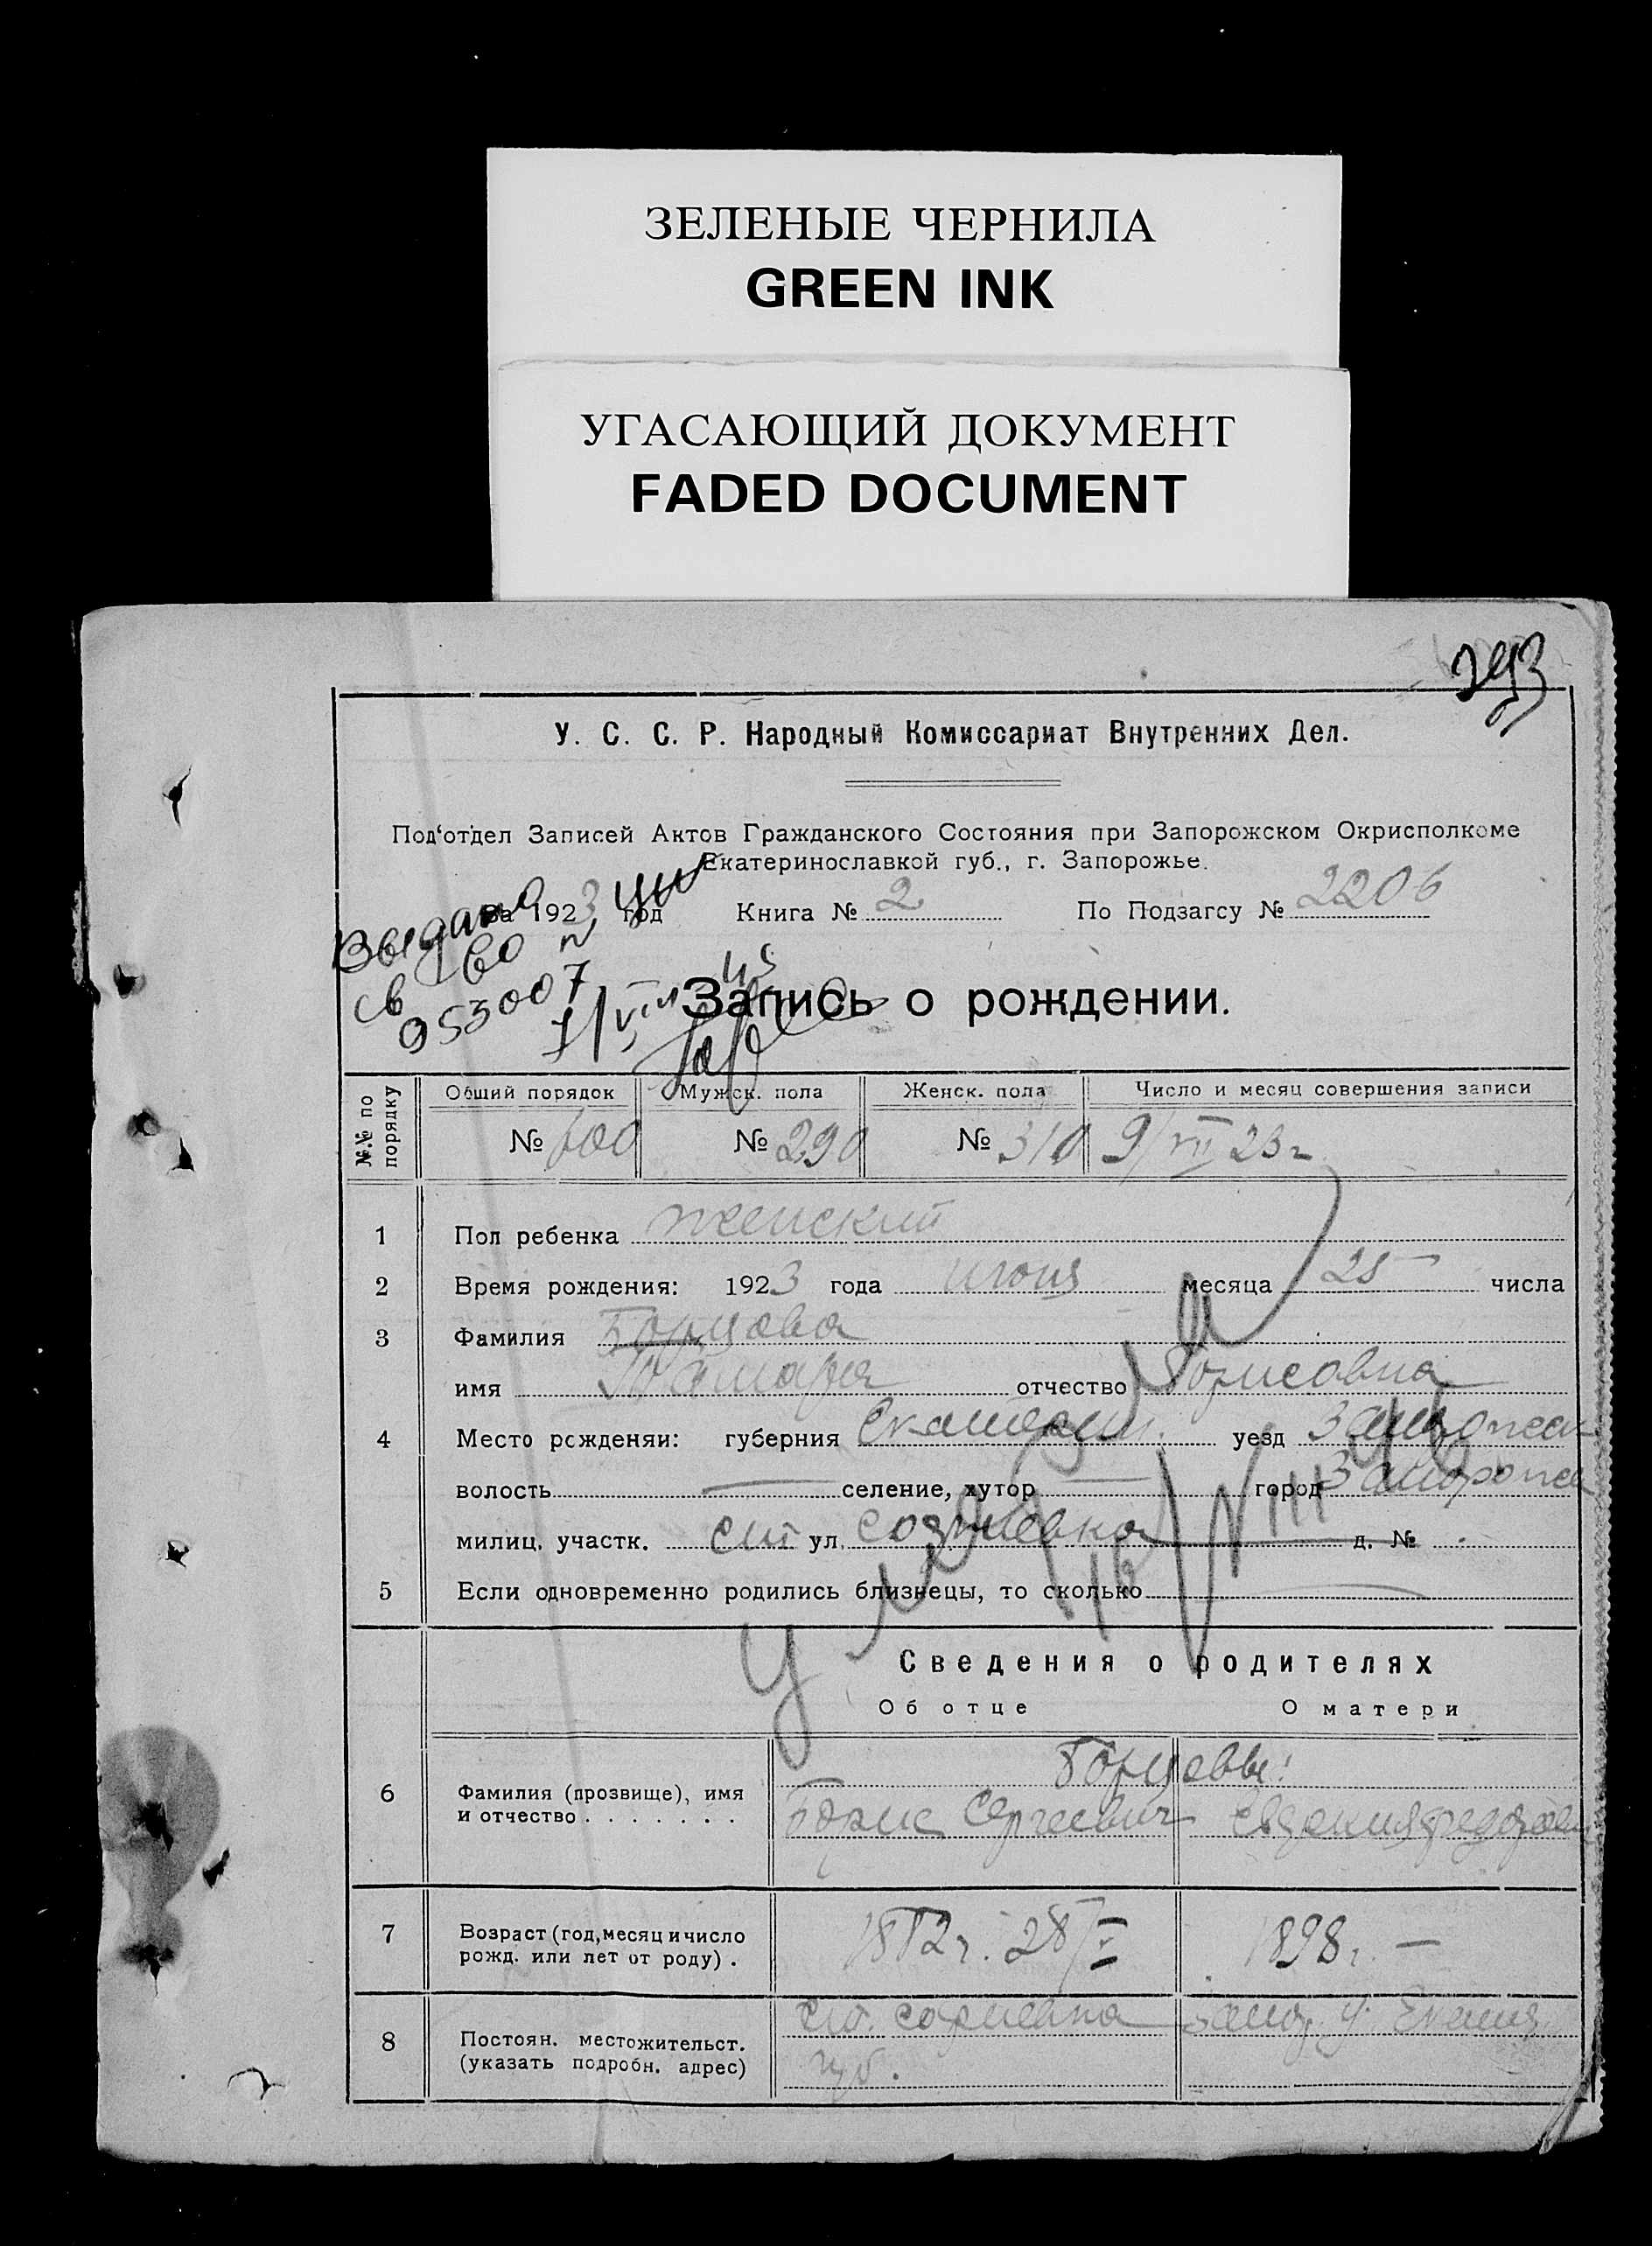 ЗЕЛЕНЫЕ ЧЕРНИЛА
GREEN INK
УГАСАЮЩИЙ ДОКУМЕНТ
FADED DOCUMENT
293
У. С. С. Р. Народный Комиссариат Внутренних Дел.
Под‘отдел Записей Актов Гражданского Состояния при Запорожском Окрисполкоме
Екатеринославкой губ., г. Запорожье.
За 1923 год Книга № 2 По Подзагсу № 2206
Выдано
св во
053007
Запись о рождении.
№.№ по порядку
Общий порядок Мужск. пола Женск. пола Число и месяц совершения записи
№ 600 № 290 № 310 9/VII 23 г
1 Пол ребенка женский
2 Время рождения: 1923 года июня месяца 25 числа
3 Фамилия Борцова
имя Тамара отчество Борисовна
4 Место рсждения­и: губерния Екатерин. уезд Запорожск
волость селение, хутор город Запорожье
милиц. участк. ст. ул. Софиевка д. №
5 Если одновременно родились близнецы, то сколько
Сведения о родителях
Об отце О матери
Борцовы:
6 Фамилия (прозвище), имя
и отчество . . . . . . . Борис Сергеевич Евдокия Федоровн
7 Возраст (год, месяц и число
рожд. или лет от роду) . 1892 г. 28/V 1898 г. —
8 Постоян. местожительст.
(указать подробн. адрес)
ст. Софиевка Запор. у. Екатер.
губ.